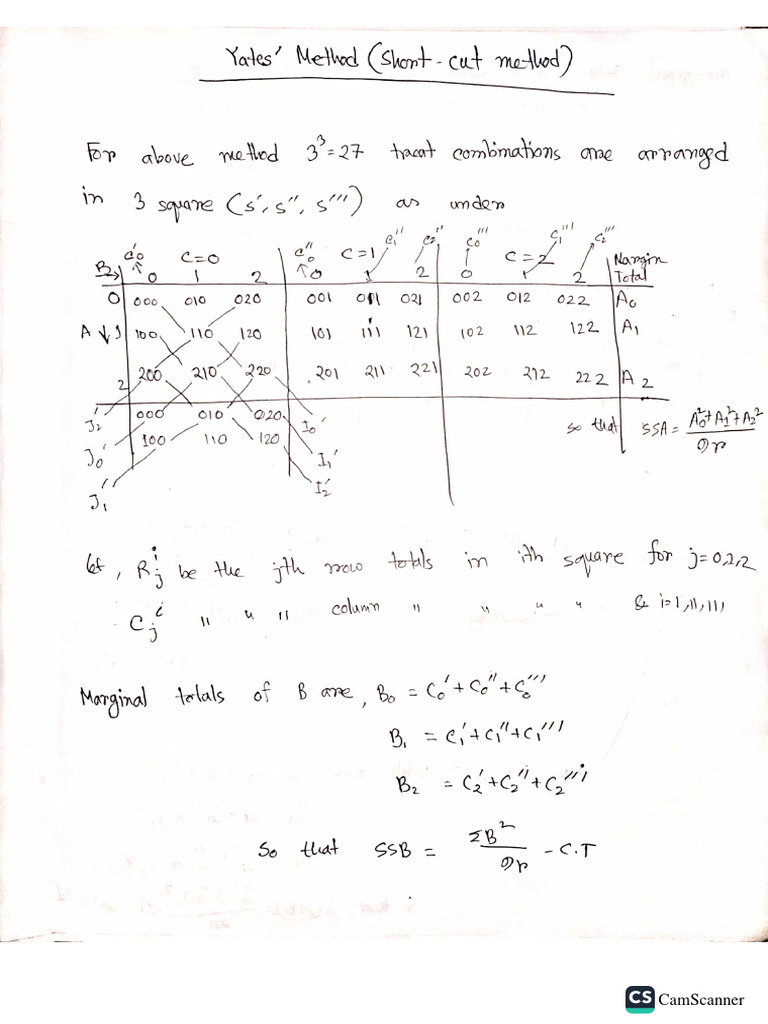 Yates' Method (Short-cut method)
For above method 3³=27 treat combinations are arranged
in 3 square (S', S'', S''') as under
C₀' C=0 C₀'' C=1 C₁'' C₂'' C₀''' C=2 C₁''' C₂''' Margin
B→ 0 1 2 0 1 2 0 1 2 Total
0 000 010 020 001 011 021 002 012 022 A₀
A↓ 1 100 110 120 101 111 121 102 112 122 A₁
2 200 210 220 201 211 221 202 212 222 A₂
J₂' 000 010 020 I₀' so that SSA = A₀²+A₁²+A₂² / 9r
J₀' 100 110 120 I₁'
J₁' I₂'
let, Rⱼⁱ be the jth row totals in ith square for j=0,1,2
Cⱼⁱ " " " column " " " " & i=1,11,111
Marginal totals of B are, B₀ = C₀' + C₀'' + C₀'''
B₁ = C₁' + C₁'' + C₁'''
B₂ = C₂' + C₂'' + C₂'''
So that SSB = ΣB² / 9r - C.T
CS CamScanner